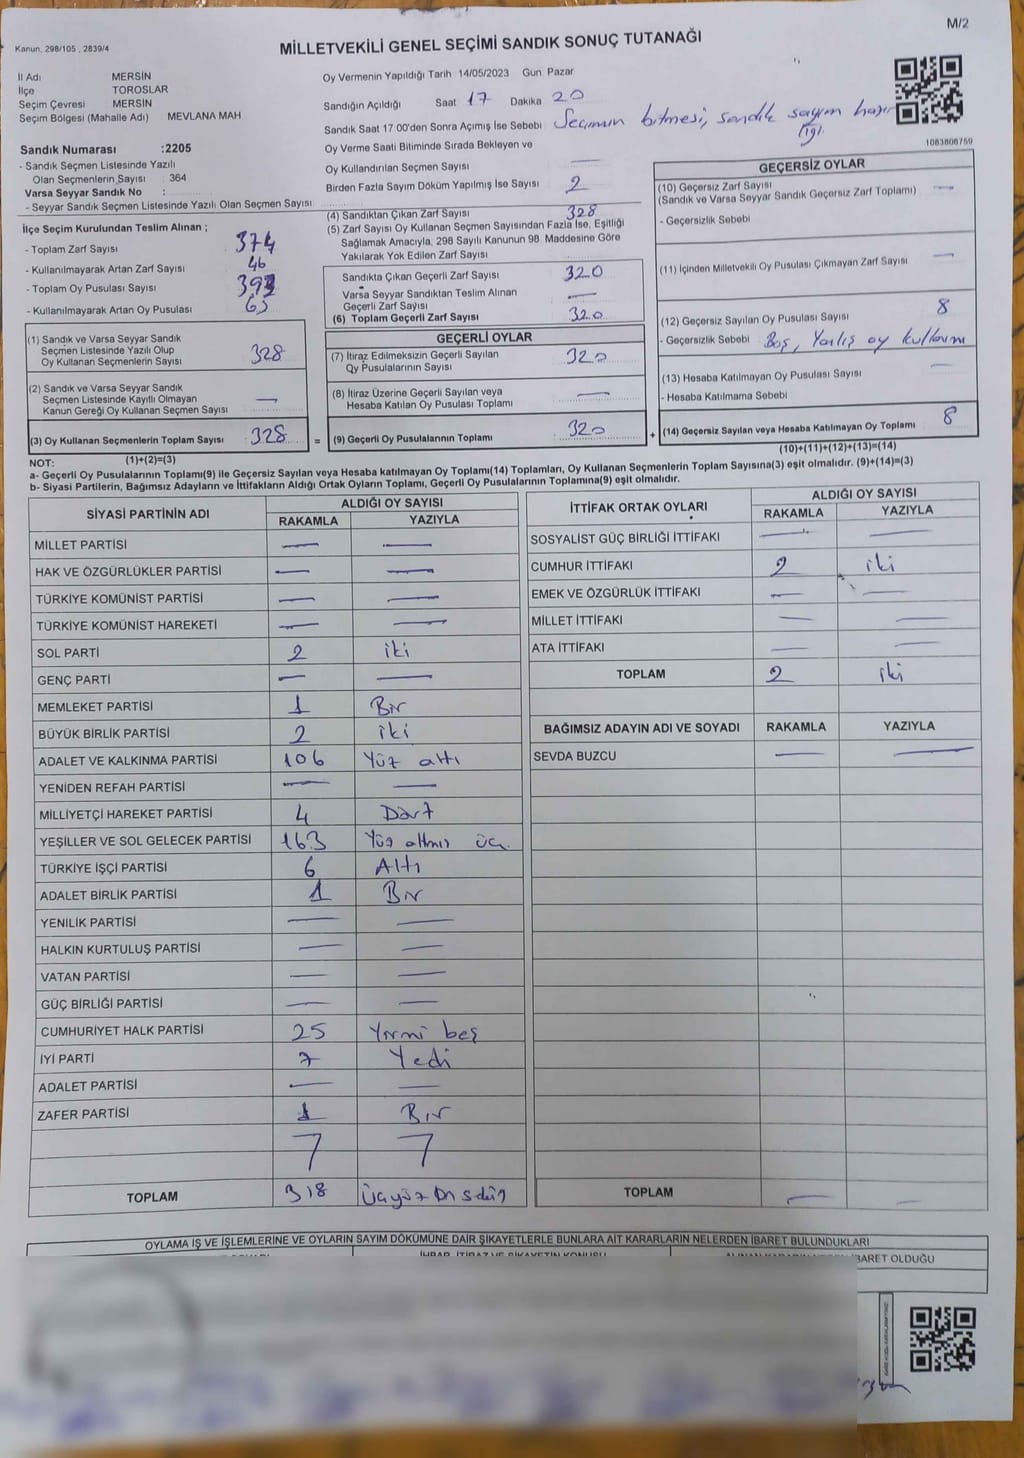 M/2
Kanun, 298/105 , 2839/4
MİLLETVEKİLİ GENEL SEÇİMİ SANDIK SONUÇ TUTANAĞI
İl Adı MERSİN
İlçe TOROSLAR
Seçim Çevresi MERSİN
Seçim Bölgesi (Mahalle Adı) MEVLANA MAH
Sandık Numarası :2205
- Sandık Seçmen Listesinde Yazılı
Olan Seçmenlerin Sayısı : 364
Varsa Seyyar Sandık No :
- Seyyar Sandık Seçmen Listesinde Yazılı Olan Seçmen Sayısı :
Oy Vermenin Yapıldığı Tarih 14/05/2023 Gün Pazar
Sandığın Açıldığı Saat 17 Dakika 20
Sandık Saat 17 00'den Sonra Açımış İse Sebebi Seçimin bitmesi, sandık sayım hazır
lığı.
Oy Verme Saati Bitiminde Sırada Bekleyen ve
Oy Kullandırılan Seçmen Sayısı —
Birden Fazla Sayım Döküm Yapılmış İse Sayısı 2
1083806759
İlçe Seçim Kurulundan Teslim Alınan ;
- Toplam Zarf Sayısı 374
- Kullanılmayarak Artan Zarf Sayısı 46
- Toplam Oy Pusulası Sayısı
- Kullanılmayarak Artan Oy Pusulası
(1) Sandık ve Varsa Seyyar Sandık
Seçmen Listesinde Yazılı Olup
Oy Kullanan Seçmenlerin Sayısı 328
(2) Sandık ve Varsa Seyyar Sandık
Seçmen Listesinde Kayıtlı Olmayan
Kanun Gereği Oy Kullanan Seçmen Sayısı —
(3) Oy Kullanan Seçmenlerin Toplam Sayısı 328 =
(1)+(2)=(3)
(4) Sandıktan Çıkan Zarf Sayısı 328
(5) Zarf Sayısı Oy Kullanan Seçmen Sayısından Fazla İse, Eşitliği
Sağlamak Amacıyla, 298 Sayılı Kanunun 98. Maddesine Göre
Yakılarak Yok Edilen Zarf Sayısı
Sandıkta Çıkan Geçerli Zarf Sayısı 320
Varsa Seyyar Sandıktan Teslim Alınan
Geçerli Zarf Sayısı —
(6) Toplam Geçerli Zarf Sayısı 320
GEÇERLİ OYLAR
(7) İtiraz Edilmeksizin Geçerli Sayılan
Oy Pusulalarının Sayısı 320
(8) İtiraz Üzerine Geçerli Sayılan veya
Hesaba Katılan Oy Pusulası Toplamı —
(9) Geçerli Oy Pusulalarının Toplamı 320 +
GEÇERSİZ OYLAR
(10) Geçersiz Zarf Sayısı —
(Sandık ve Varsa Seyyar Sandık Geçersiz Zarf Toplamı)
- Geçersizlik Sebebi
(11) İçinden Milletvekili Oy Pusulası Çıkmayan Zarf Sayısı —
(12) Geçersiz Sayılan Oy Pusulası Sayısı 8
- Geçersizlik Sebebi Boş, Yanlış oy kullanım
(13) Hesaba Katılmayan Oy Pusulası Sayısı —
- Hesaba Katılmama Sebebi
(14) Geçersiz Sayılan veya Hesaba Katılmayan Oy Toplamı 8
(10)+(11)+(12)+(13)=(14)
NOT:
a- Geçerli Oy Pusulalarının Toplamı(9) ile Geçersiz Sayılan veya Hesaba katılmayan Oy Toplamı(14) Toplamları, Oy Kullanan Seçmenlerin Toplam Sayısına(3) eşit olmalıdır. (9)+(14)=(3)
b- Siyasi Partilerin, Bağımsız Adayların ve İttifakların Aldığı Ortak Oyların Toplamı, Geçerli Oy Pusulalarının Toplamına(9) eşit olmalıdır.
SİYASİ PARTİNİN ADI ALDIĞI OY SAYISI
RAKAMLA YAZIYLA
MİLLET PARTİSİ — —
HAK VE ÖZGÜRLÜKLER PARTİSİ — —
TÜRKİYE KOMÜNİST PARTİSİ — —
TÜRKİYE KOMÜNİST HAREKETİ — —
SOL PARTİ 2 iki
GENÇ PARTİ — —
MEMLEKET PARTİSİ 1 Bir
BÜYÜK BİRLİK PARTİSİ 2 iki
ADALET VE KALKINMA PARTİSİ 106 Yüz altı
YENİDEN REFAH PARTİSİ — —
MİLLİYETÇİ HAREKET PARTİSİ 4 Dört
YEŞİLLER VE SOL GELECEK PARTİSİ 163 Yüz altmış üç
TÜRKİYE İŞÇİ PARTİSİ 6 Altı
ADALET BİRLİK PARTİSİ 1 Bir
YENİLİK PARTİSİ — —
HALKIN KURTULUŞ PARTİSİ — —
VATAN PARTİSİ — —
GÜÇ BİRLİĞİ PARTİSİ — —
CUMHURİYET HALK PARTİSİ 25 Yirmi beş
İYİ PARTİ 7 Yedi
ADALET PARTİSİ — —
ZAFER PARTİSİ 1 Bir
TOPLAM 318 Üçyüz on sekiz
İTTİFAK ORTAK OYLARI ALDIĞI OY SAYISI
RAKAMLA YAZIYLA
SOSYALİST GÜÇ BİRLİĞİ İTTİFAKI — —
CUMHUR İTTİFAKI 2 iki
EMEK VE ÖZGÜRLÜK İTTİFAKI — —
MİLLET İTTİFAKI — —
ATA İTTİFAKI — —
TOPLAM 2 iki
BAĞIMSIZ ADAYIN ADI VE SOYADI RAKAMLA YAZIYLA
SEVDA BUZCU — —
TOPLAM — —
OYLAMA İŞ VE İŞLEMLERİNE VE OYLARIN SAYIM DÖKÜMÜNE DAİR ŞİKAYETLERLE BUNLARA AİT KARARLARIN NELERDEN İBARET BULUNDUKLARI
İHBAR, İTİRAZ VE ŞİKAYETİN KONUSU
İBARET OLDUĞU